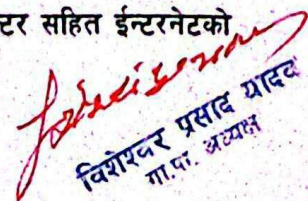 टर सहित ईन्टरनेटको
विशेश्वर प्रसाद यादव
गा.पा. अध्यक्ष